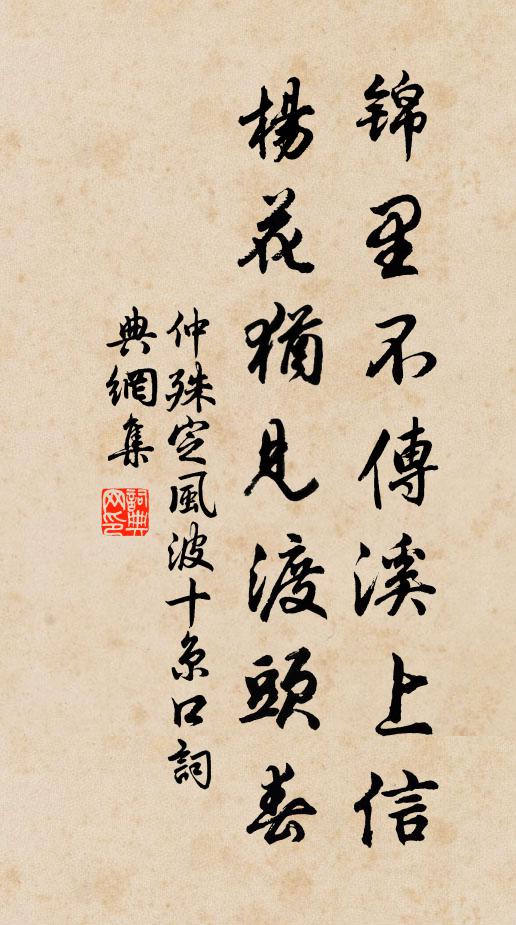 锦里不傳溪上信
楊花猶見渡頭春
仲殊定風波十京口詞
典網集
詞典网印